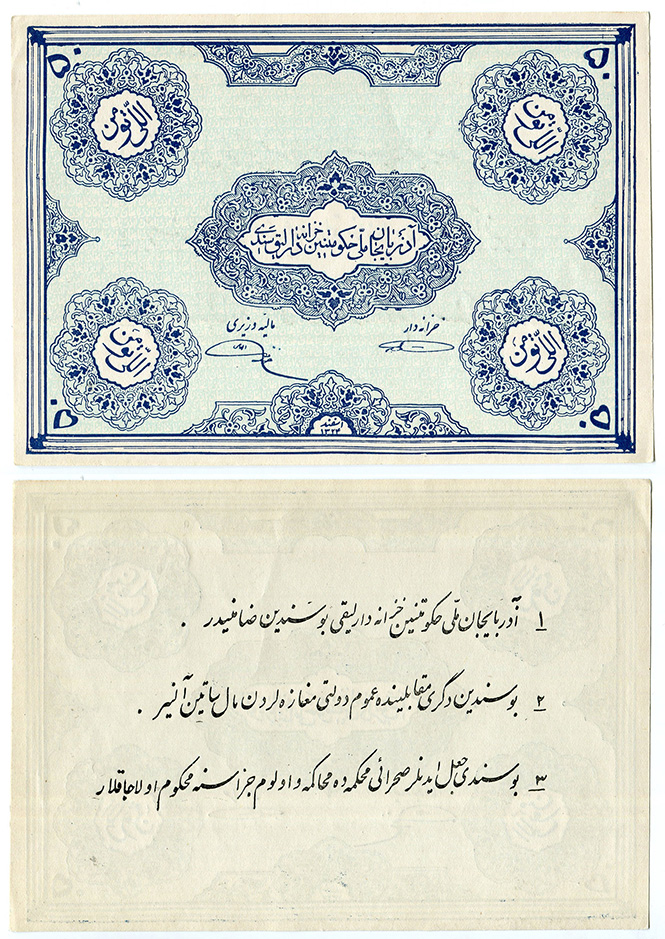 ۵۰
۵۰
اللی تومن
اللی تومن
آذربایجان ملی حکومتنین خزانه دارلیق سندی
خزانه دار
مالیه وزیری
اللی تومن
اللی تومن
اسفند
۱۳۲۴
۵۰
۵۰
۱ آذربایجان ملی حکومتنین خزانه دارلیقی بو سندین ضامنیدیر .
۲ بو سندین دگری مقابلینده عموم دولتی مغازه لردن مال ساتین آلنیر .
۳ بو سندی جعل ایدنلر صحرائی محکمه ده محاکمه و اولوم جزاسنه محکوم اولاجاقلار